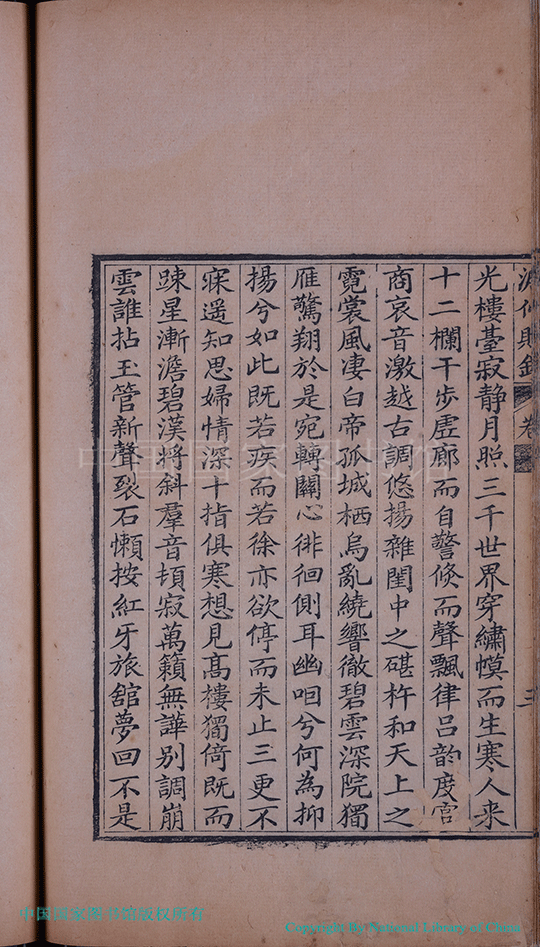 光樓臺寂靜月照三千世界穿繡幙而生寒人来
十二欄干步虚廊而自警倐而聲飄律呂韵度宫
商哀音激越古調悠揚雜閨中之碪杵和天上之
霓裳風凄白帝孤城栖烏亂繞響徹碧雲深院獨
雁驚翔於是宛轉關心徘徊側耳幽咽兮何為抑
揚兮如此既若疾而若徐亦欲停而未止三更不
寐遥知思婦情深十指俱寒想見髙樓獨倚既而
踈星漸澹碧漢將斜羣音頓寂萬籟無譁别調崩
雲誰拈玉管新聲裂石懶按紅牙旅舘夢回不是
中国国家图书馆
中国国家图书馆版权所有
Copyright By National Library of China